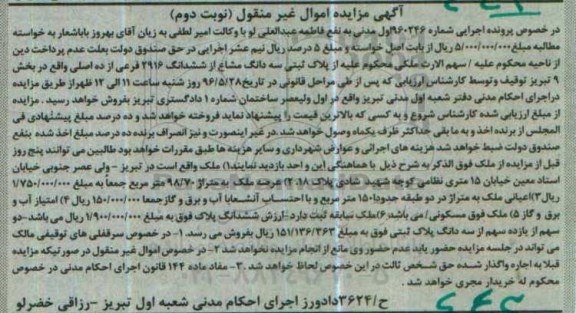 آگهی مزایده اموال غیر منقول (نوبت دوم)
در خصوص پرونده اجرایی شماره ۹۶۰۲۴۶/اول مدنی به نفع فاطمه عبدالعلی لو با وکالت امیر لطفی به زیان آقای بهروز باباشعار به خواسته
مطالبه مبلغ ۵/۰۰۰/۰۰۰/۰۰۰ ریال از بابت اصل خواسته و مبلغ ۵ درصد ریال نیم عشر اجرایی در حق صندوق دولت بعلت عدم پرداخت دین
از ناحیه محکوم علیه / سهم الارث ملکی محکوم علیه از پلاک ثبتی سه دانگ مشاع از ششدانگ ۲۹۱۶ فرعی از ده اصلی واقع در بخش
۹ تبریز توقیف و توسط کارشناس ارزیابی که پس از طی مراحل قانونی در تاریخ ۹۶/۵/۲۸ روز شنبه ساعت ۱۱ الی ۱۲ ظهر از طریق مزایده
در اجرای احکام مدنی دفتر شعبه اول مدنی تبریز واقع در اول ولیعصر ساختمان شماره ۱ دادگستری تبریز بفروش خواهد رسید . مزایده
از مبلغ ارزیابی شده کارشناس شروع و به کسی که بالاترین قیمت را پیشنهاد نماید فروخته خواهد شد و ده درصد مبلغ پیشنهادی فی
المجلس از برنده اخذ و به ما بقی حداکثر ظرف یکماه وصول خواهد شد. در غیر اینصورت و نیز انصراف برنده ده درصد مبلغ اخذ شده بنفع
صندوق دولت ضبط خواهد شد هزینه های اجرائی و عوارض شهرداری و سایر هزینه ها طبق مقررات خواهد بود طالبین می توانند پنج روز
قبل از مزایده از ملک فوق الذکر به شرح ذیل با هماهنگی این واحد بازدید نمایند ۱) ملک واقع است در تبریز - ولی عصر جنوبی خیابان
استاد معین خیابان ۱۵ متری نظامی کوچه شهید عبادی پلاک ۱۸ ۲) عرصه ملک به متراژ ۹۸/۷۰ متر مربع جمعاً به مبلغ ۱/۷۵۰/۰۰۰/۰۰۰
ریال ۳) اعیانی ملک به متراژ در دو طبقه جدودا ۱۵۰ متر مربع و با احتساب آنشعابا آب و برق و گاز جمعا ۱۵۰/۰۰۰/۰۰۰ ریال ۴) امتیاز آب و
برق و گاز ۵) ملک فوق مسکونی/ می باشد ۶) ملک سابقه ثبت دارد -ارزش ششدانگ پلاک فوق به مبلغ ۱/۹۰۰/۰۰۰/۰۰۰ ریال می باشد -دو
سهم از یازده سهم از سه دانگ پلاک ثبتی فوق به مبلغ ۱۵۱/۱۳۶/۳۶۳ ریال بفروش می رسد. ۱- در خصوص سرقفلی های توقیفی مالک
می تواند در جلسه مزایده حضور یابد عدم حضور وی مانع از انجام مزایده نخواهد شد ۲- در خصوص اموال غیر منقول در صورتیکه مزایده
قبلا به اجاره واگذار شده حق شخص ثالث در این خصوص لحاظ خواهد شد . ۳- مفاد ماده ۱۴۴ قانون اجرای احکام مدنی در خصوص
محکوم له خریدار مجری خواهد شد .
ح/۳۶۲۴ دادورز اجرای احکام مدنی شعبه اول تبریز -رزاقی خضرلو